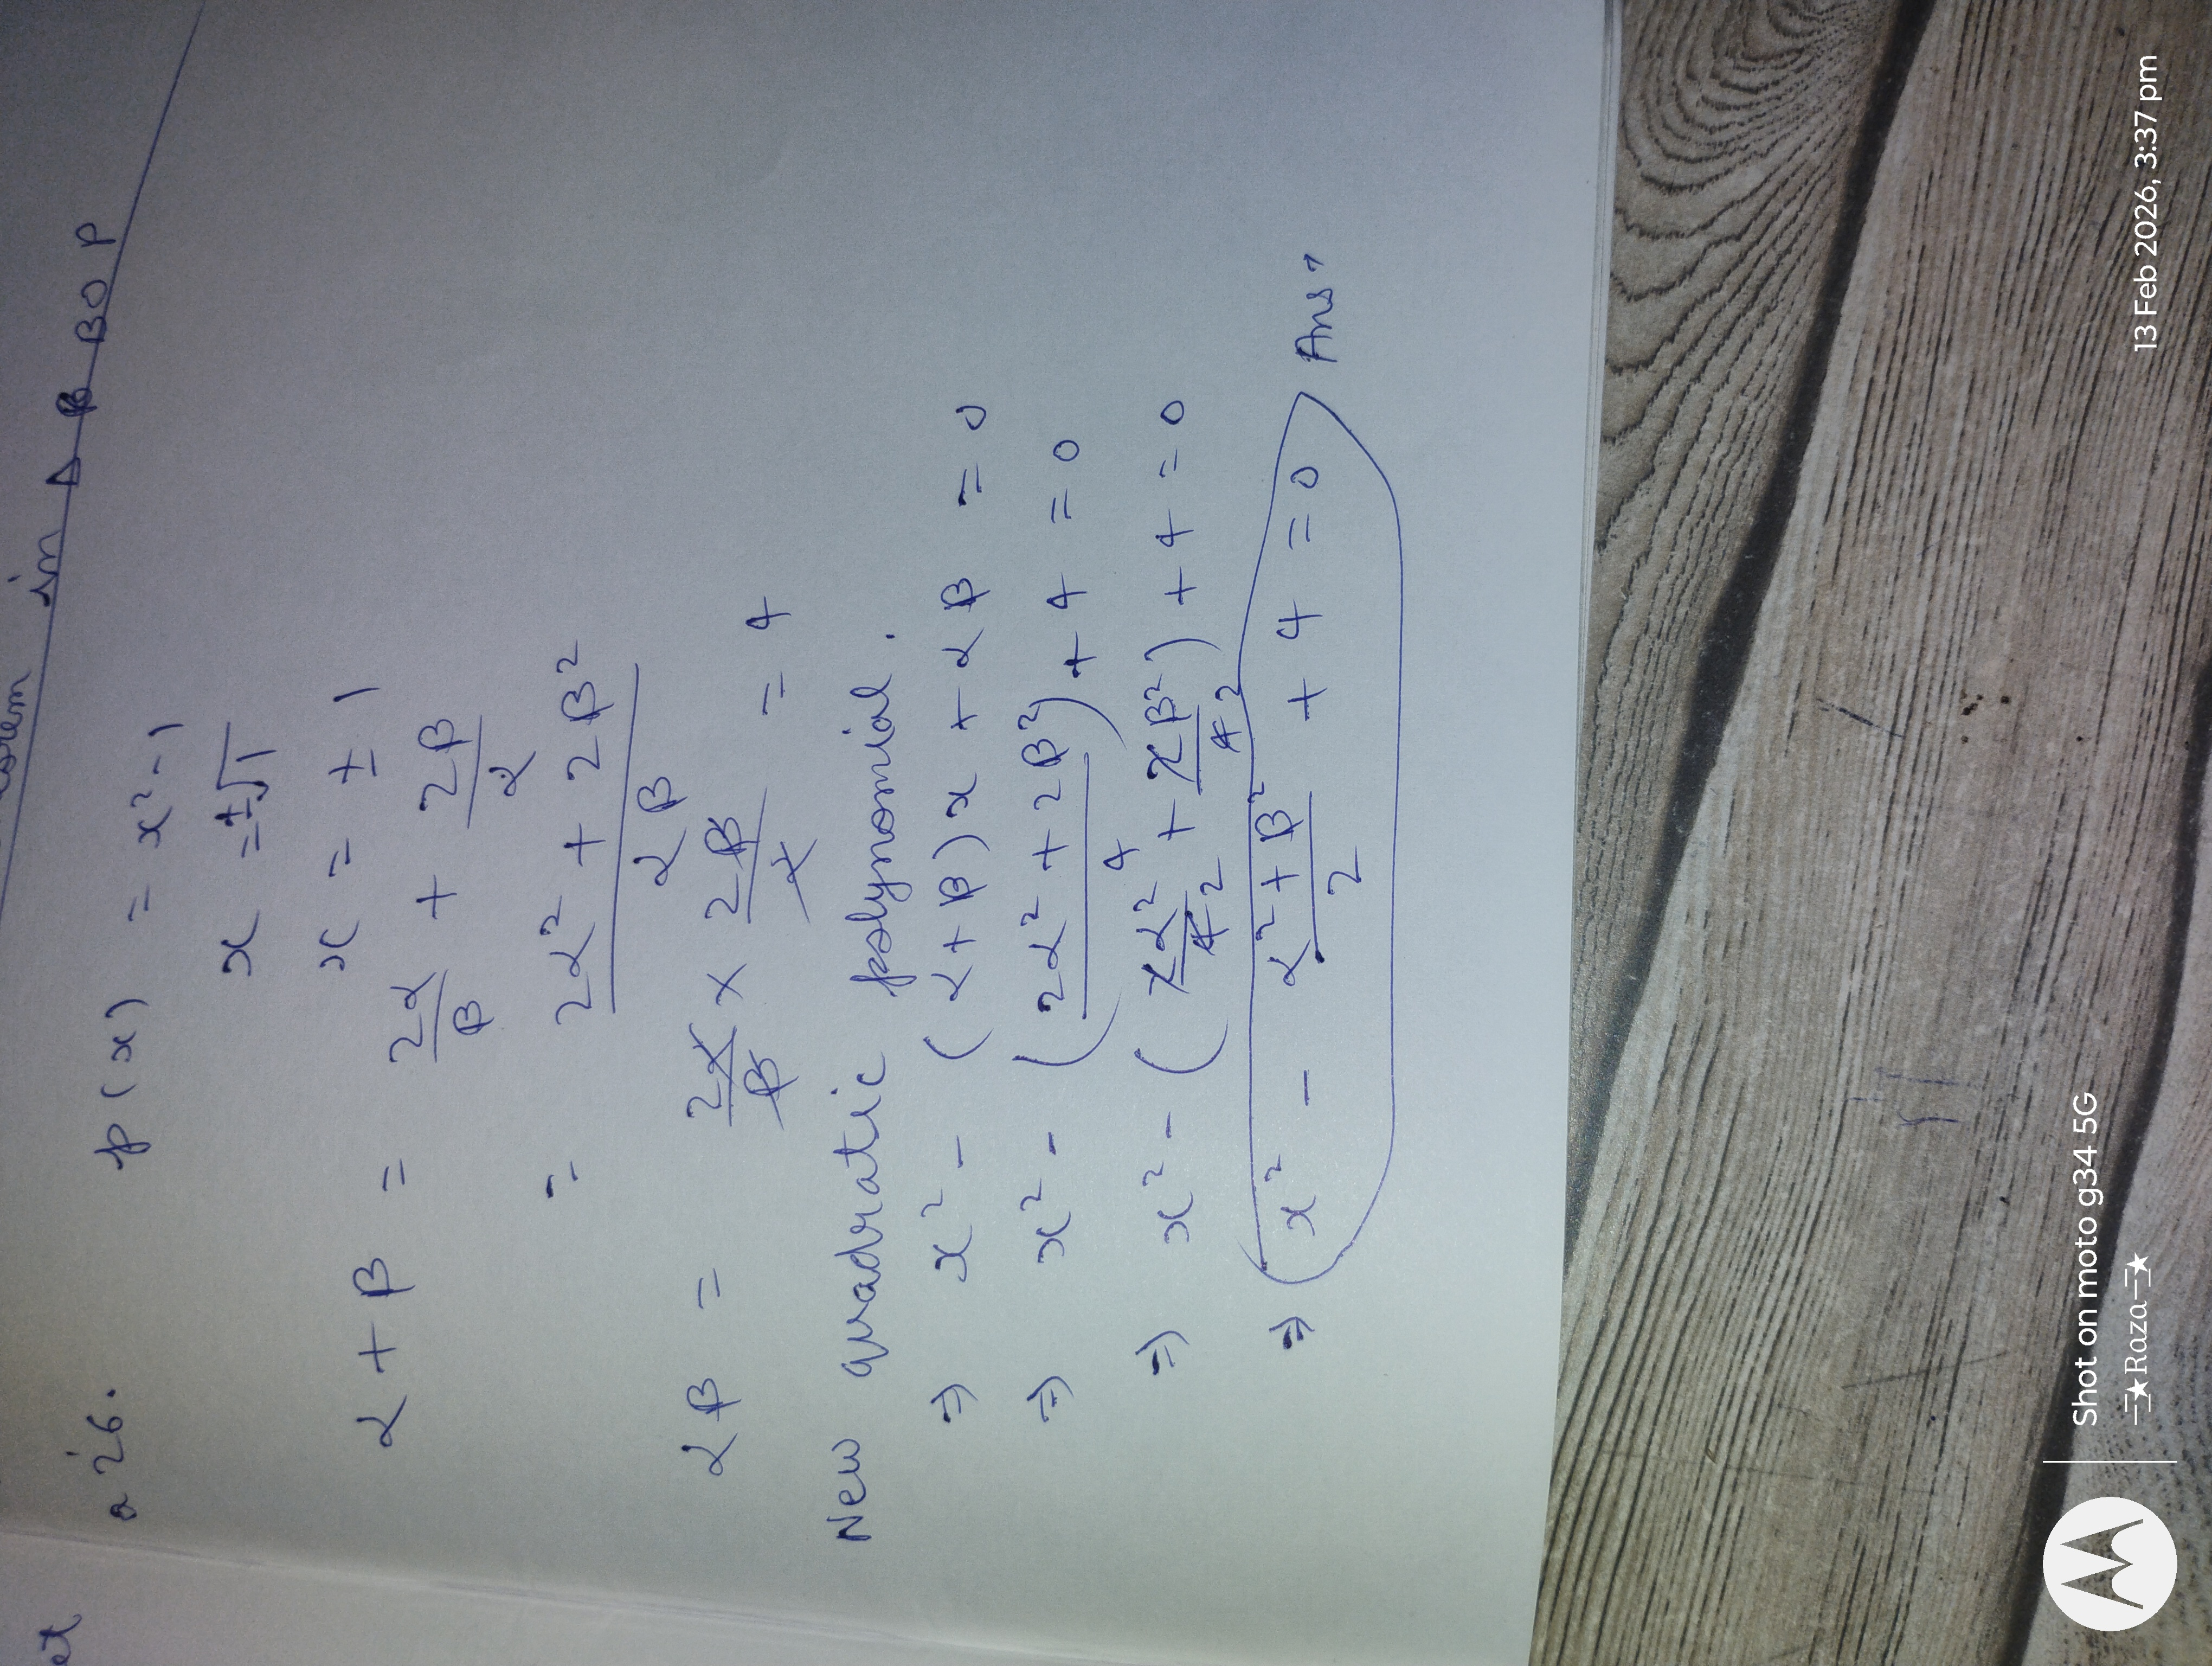 in Δ BOP
et
Q 26. p(x) = x² - 1
x = ±√1
x = ± 1
α + β = 2α/β + 2β/α
= (2α² + 2β²)/αβ
αβ = 2α/β × 2β/α = 4
New quadratic polynomial.
⇒ x² - (α + β)x + αβ = 0
⇒ x² - ((2α² + 2β²)/4) + 4 = 0
⇒ x² - (2α²/4 2 + 2β²/4 2) + 4 = 0
⇒ x² - (α² + β²)/2 + 4 = 0 Ans,
Shot on moto g34 5G
★Raza★
13 Feb 2026, 3:37 pm